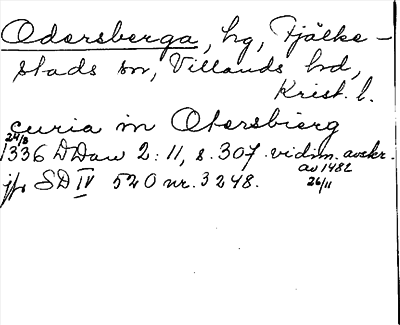 Odersberga, hg, Fjälke-
stads sn, Villands hd,
Krist. l.
curia in Otersbierg
24/8
1336 DDan 2:11, s. 307. vidim. avskr.
av 1482
26/11
jfr SD IV 520 nr. 3248.